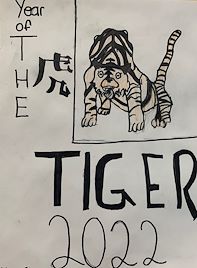 Year
of
THE
虎
TIGER
2022